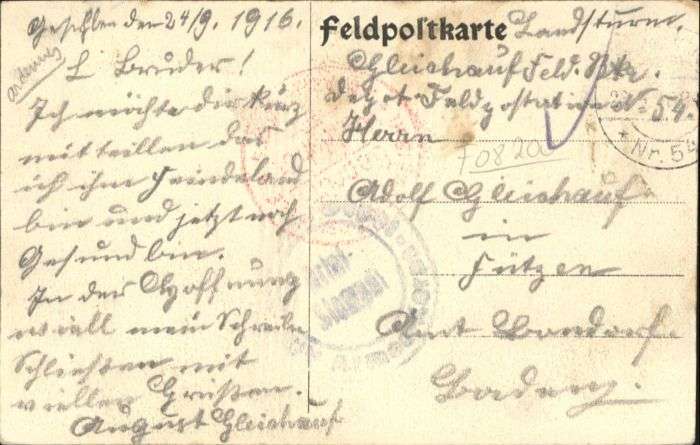 Geschben den 24/9. 1916.
L Bruder!
Ich möchte dir kurz
mitteillen das
ich ihm Feindeland
bin und jetzt noch
Gesund bin.
In der Hoffnung
will mein Schreiben
Schließen mit
viellen Grüßen.
August Gleichauf
Feldpostkarte Landsturm.
Gleichauf Feld.
Depot Feldpostation No 54.
Herrn
Adolf Gleichauf
in
Fützen
Amt Bondorf.
Baden
f 0820
* Nr. 54